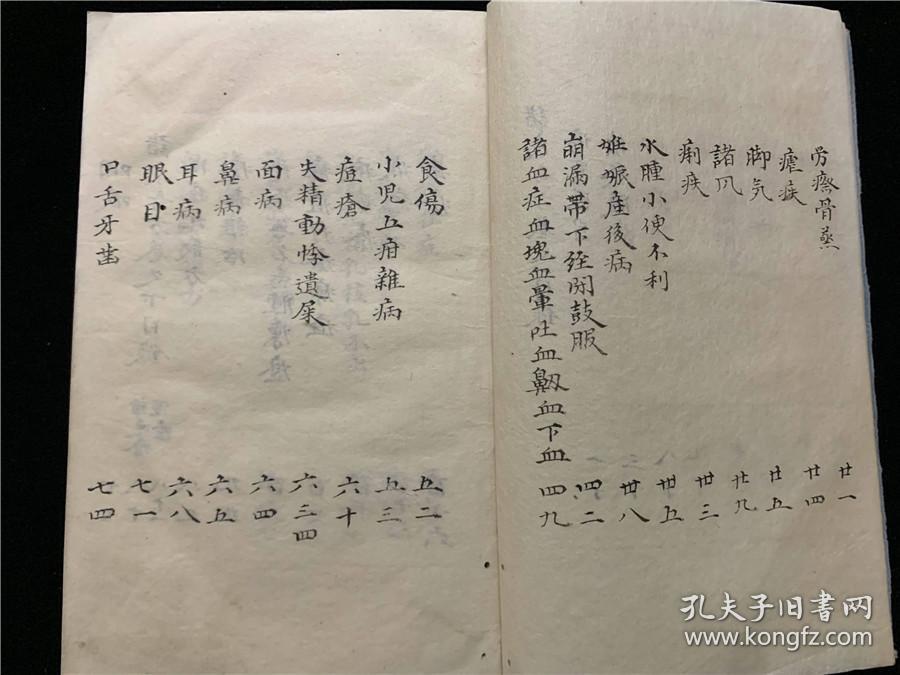 労瘵骨蒸 廿一
瘧疾 廿四
脚気 廿五
諸風 廿九
痢疾 卅三
水腫小便不利 卅五
妊娠産後病 卅八
崩漏帯下経閉鼓脹 四二
諸血症血塊血暈吐血衂血下血 四九
食傷 五二
小児五疳雜病 五三
痘瘡 六十
失精動悸遺屎 六三四
面病 六四
鼻病 六五
耳病 六八
眼目 七一
口舌牙歯 七四
孔夫子旧书网
www.kongfz.com